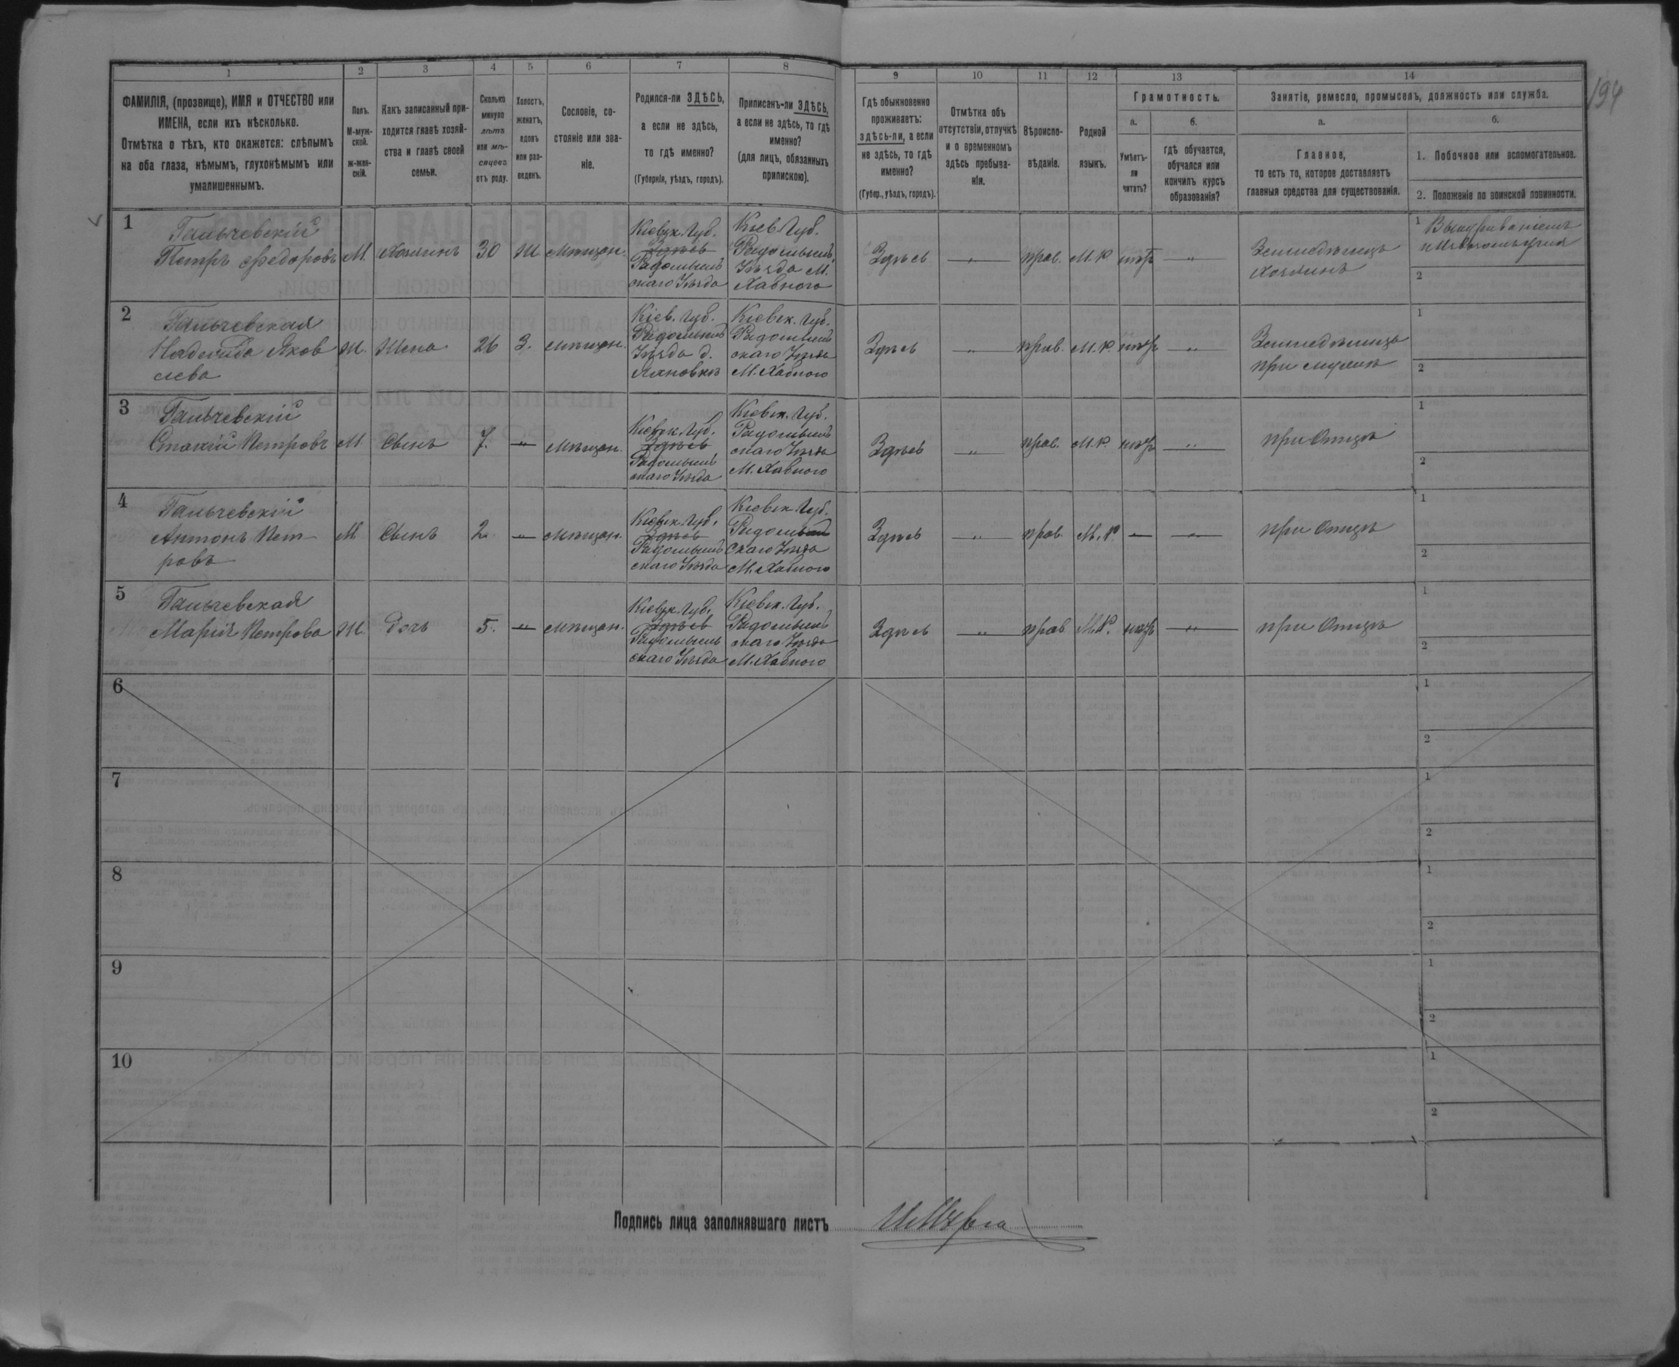 194
1 2 3 4 5 6 7 8 9 10 11 12 13 14
ФАМИЛІЯ, (прозвище), ИМЯ и ОТЧЕСТВО или
ИМЕНА, если ихъ нѣсколько.
Отмѣтка о тѣхъ, кто окажется: слѣпымъ
на оба глаза, нѣмымъ, глухонѣмымъ или
умалишеннымъ.
Полъ.
М-муж-
ской.
ж-жен-
скій.
Какъ записанный при-
ходится главѣ хозяй-
ства и главѣ своей
семьи.
Сколько
минуло
лѣтъ
или мѣ-
сяцевъ
отъ роду.
Холостъ,
женатъ,
вдовъ
или раз-
веденъ.
Сословіе, со-
стояніе или зва-
ніе.
Родился-ли ЗДѢСЬ,
а если не здѣсь,
то гдѣ именно?
(Губернія, уѣздъ, городъ).
Приписанъ-ли ЗДѢСЬ,
а если не здѣсь, то гдѣ
именно?
(для лицъ, обязанныхъ
припискою).
Гдѣ обыкновенно
проживаетъ:
здѣсь-ли, а если
не здѣсь, то гдѣ
именно?
(Губер., уѣздъ, городъ).
Отмѣтка объ
отсутствіи, отлучкѣ
и о временномъ
здѣсь пребыва-
ніи.
Вѣроиспо-
вѣданіе.
Родной
языкъ.
Грамотность.
а.
Умѣетъ-
ли
читать?
б.
гдѣ обучается,
обучался или
кончилъ курсъ
образованія?
Занятіе, ремесло, промыселъ, должность или служба.
а.
Главное,
то есть то, которое доставляетъ
главныя средства для существованія.
б.
1. Побочное или вспомогательное.
2. Положеніе по воинской повинности.
1
Петръ Федоровъ М Хозяинъ 30 Ж Мѣщан.
Кіевск. Губ.
Здѣсь
Радомысль
скаго Уѣзда
Кіев Губ.
Радомышль
Уѣзда М.
Хабного
Здѣсь — " — прав. М. Р.
Земледѣлецъ
Хозяинъ
1
2
2
Надежда Яков
лева
Ж. Жена 26 З. Мѣщан.
Кіев. Губ.
Радомысль
Уѣзда д.
Кіевск. Губ.
Радомысль
скаго Уѣзда
М. Хабного
Здѣсь — " — прав. М. Р
Земледѣлица
при мужѣ
1
2
3
Петровъ М Сынъ 7. — " — Мѣщан.
Кіевск. Губ.
Здѣсь
Радомысль
скаго Уѣзда
Кіевск. Губ.
Радомысль
скаго Уѣзда
М. Хабного
Здѣсь — " — прав. М. Р
при Отцѣ
1
2
4
Антонъ Пет
ровъ
М Сынъ 2 — " — Мѣщан.
Кіевск. Губ.
Здѣсь
Радомысль
скаго Уѣзда
Кіевск. Губ.
Радомысль
скаго Уѣзда
М. Хабного
Здѣсь — " — прав М. Р — — " —
при Отцѣ
1
2
5
Марія Петрова Ж. Дочь 5. — " — Мѣщан.
Кіевск. Губ.
Здѣсь
Радомысль
скаго Уѣзда
Кіевск. Губ.
Радомысль
скаго Уѣзда
М. Хабного
Здѣсь — " — прав М. Р.
при Отцѣ
1
2
6
1
2
7
1
2
8
1
2
9
1
2
10
1
2
Подпись лица заполнявшаго листъ